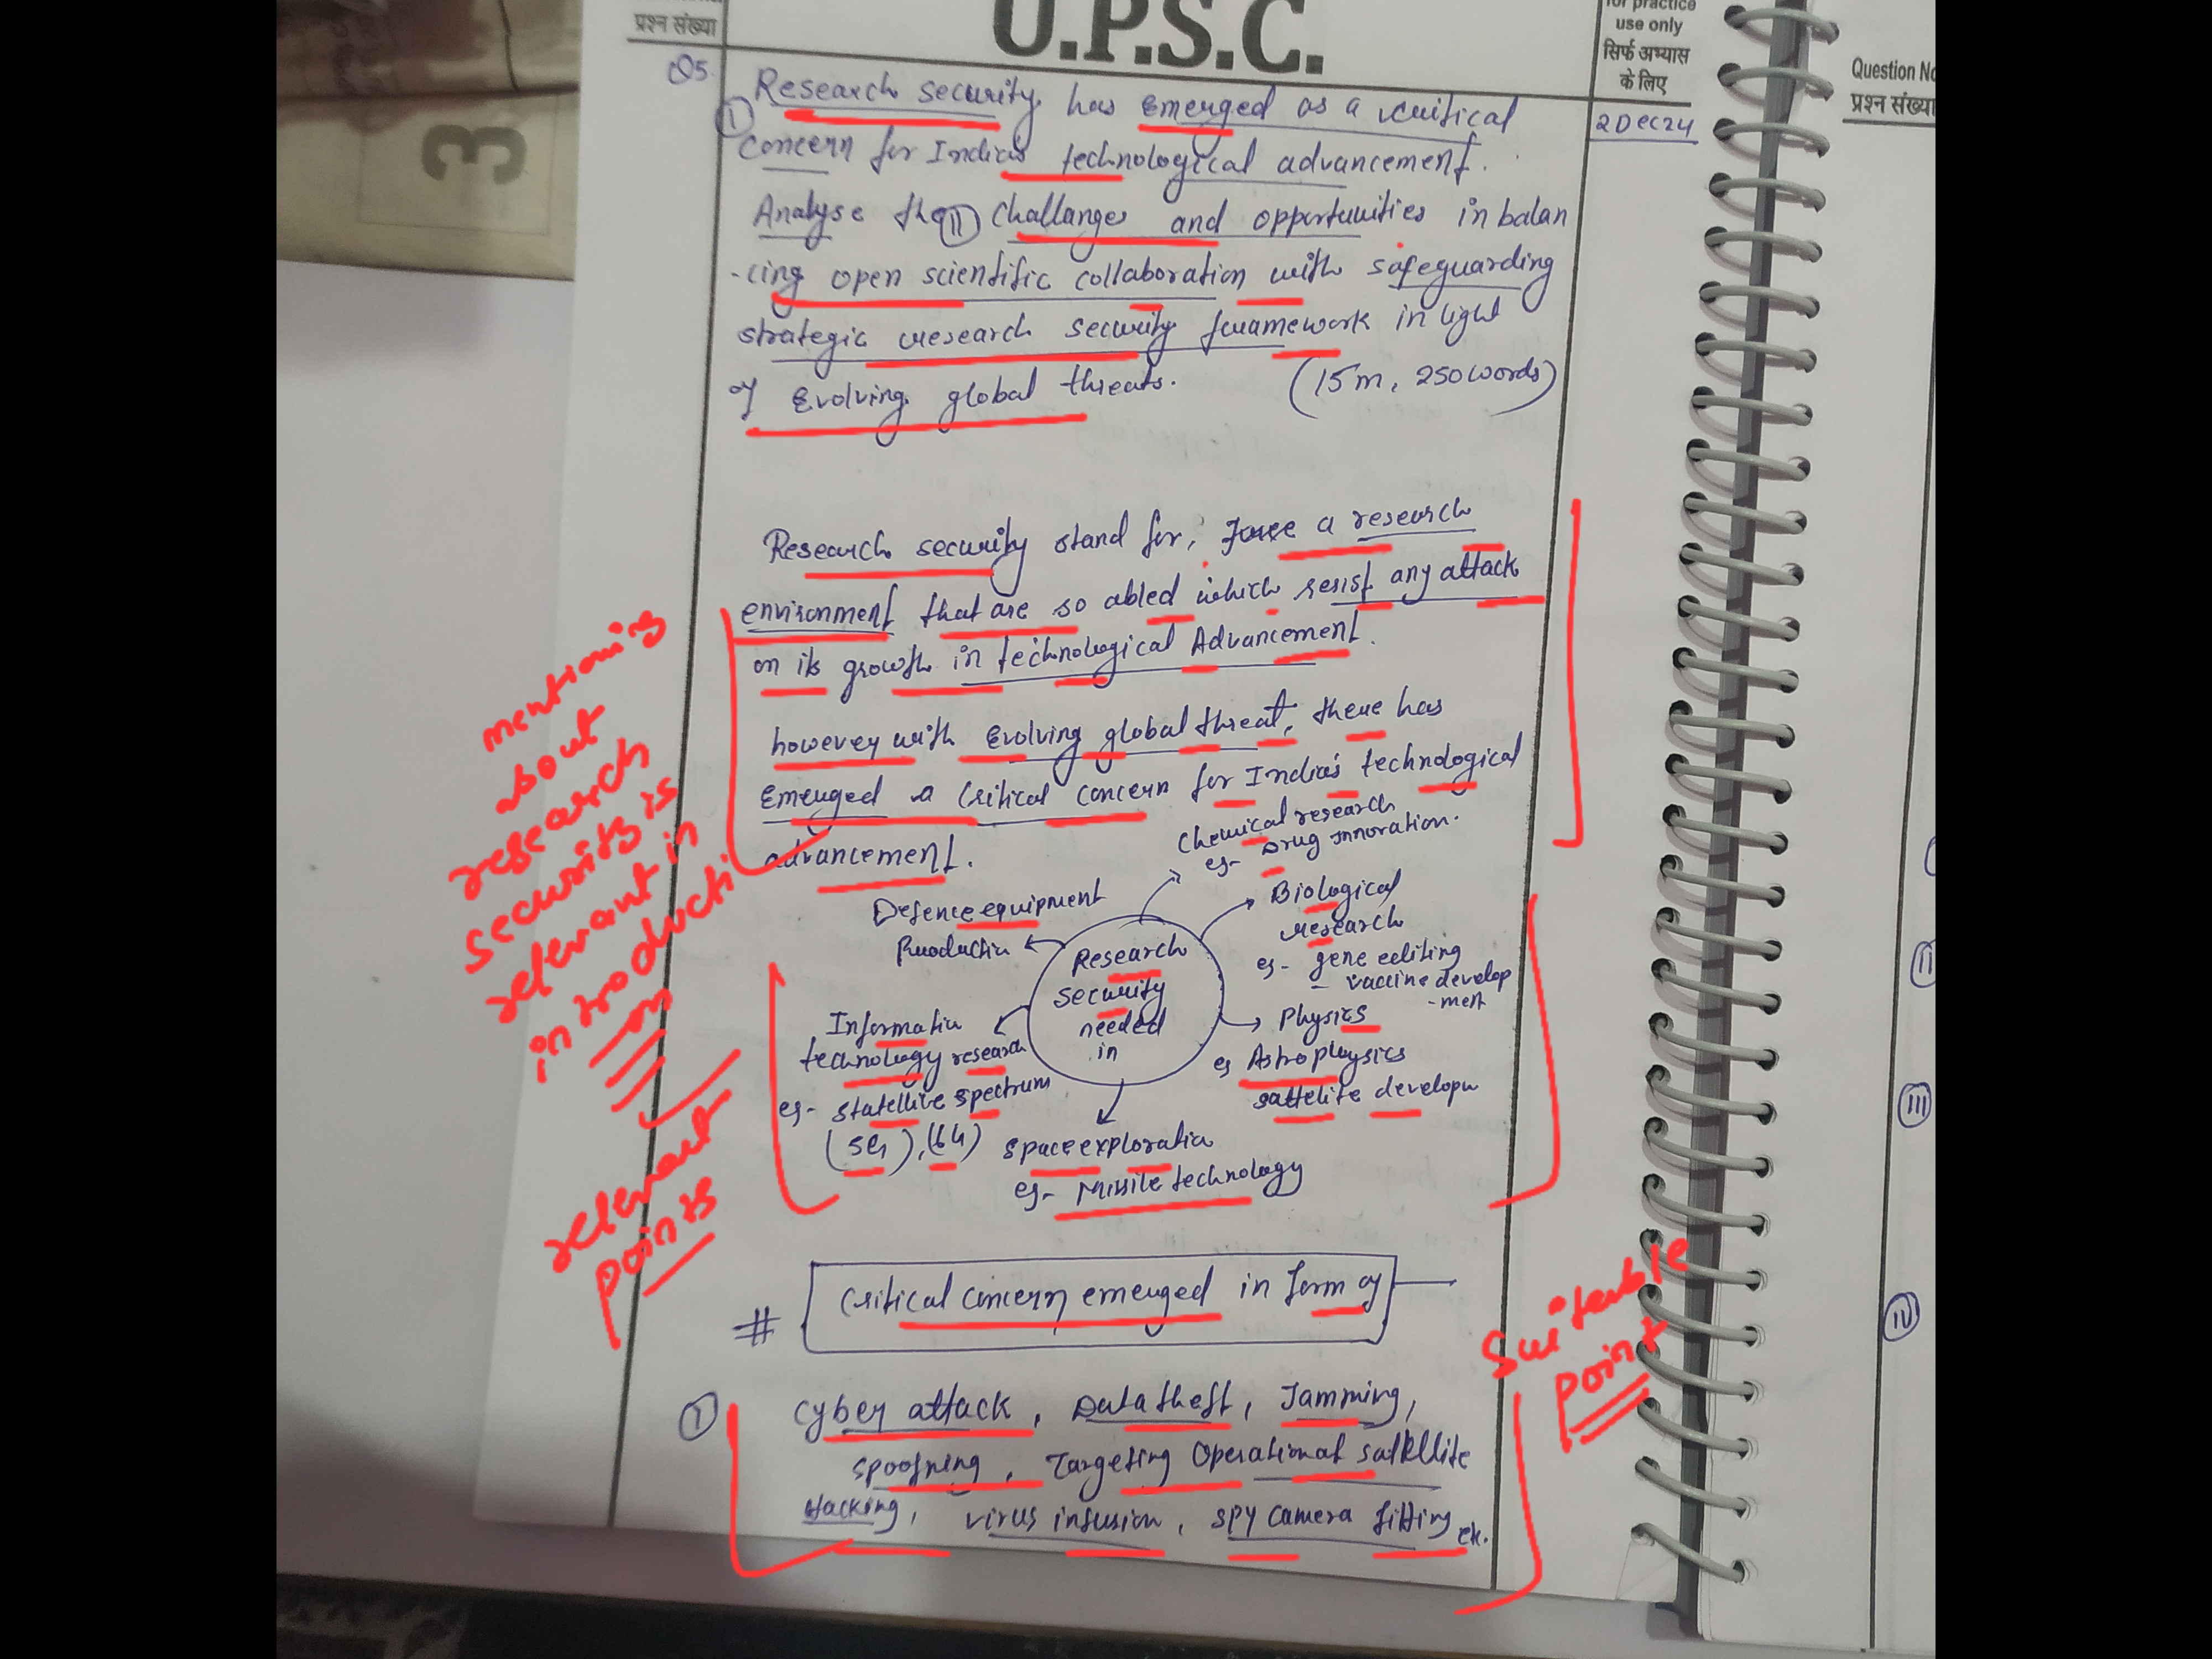 प्रश्न संख्या
U.P.S.C.
for practice
use only
सिर्फ अभ्यास
के लिए
Question No
प्रश्न संख्या
3
2 Dec 24
Q5.
(I) Research security has Emerged as a critical
concern for India's technological advancement.
Analyse the (II) Challanges and opportunities in balan
-cing open scientific collaboration with safeguarding
strategic research security framework in light
of Evolving global threats. (15m, 250 words)
Research security stand for, Force a research
environment that are so abled which resist any attack
on its growth in technological Advancement.
however with Evolving global threat, there has
Emerged a critical concern for India's technological
advancement.
Chemical research
eg- Drug innovation.
Defence equipment
Production
Biological
research
eg- gene editing
- vaccine develop
-ment
Research
security
needed
in
Physics
eg Astrophysics
sattelite develop
Informatin
technology research
eg- statellite spectrum
(5G), (6G)
space exploratin
eg- Missile technology
# Critical concern emerged in form of
(I) Cyber attack, Data theft, Jamming,
spoofning, Targeting Operational satellite
Hacking, virus infusion, spy camera fitting etc.
mentioning
about
research
security is
relevant in
introducti
on
relevant
points
Suitable
point
(II)
(III)
(IV)